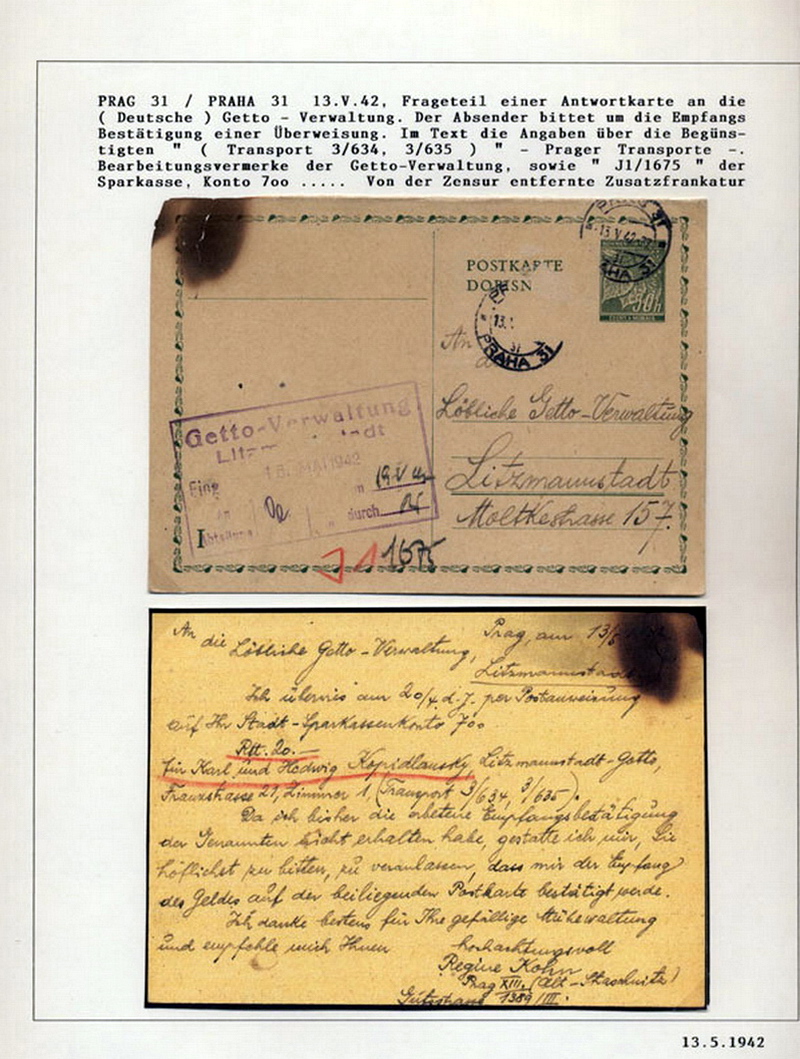 PRAG 31 / PRAHA 31 13.V.42, Frageteil einer Antwortkarte an die
( Deutsche ) Getto - Verwaltung. Der Absender bittet um die Empfangs
Bestätigung einer Überweisung. Im Text die Angaben über die Begüns-
tigten " ( Transport 3/634, 3/635 ) " - Prager Transporte -.
Bearbeitungsvermerke der Getto-Verwaltung, sowie " J1/1675 " der
Sparkasse, Konto 7oo ..... Von der Zensur entfernte Zusatzfrankatur
PRAHA 31
13.V.42
POSTKARTE
DOPISN
50h
13.
PRAHA 31
An
Löbliche Getto-Verwaltung
Litzmannstadt
Moltkestrasse 157.
Getto-Verwaltung
Eing
MAI 1942
19.V.42
durch
Abteilung
J1 1675
An die Löbliche Getto-Verwaltung,
Prag, am 13/5
Litzmannstadt
Ich überwies am 20/4 d.J. per Postanweisung
auf Ihr Stadt-Sparkassenkonto 700
Rtt. 20.—
für Karl und Hedwig Kopidlansky Litzmannstadt-Getto,
Franzstrasse 21, Zimmer 1 (Transport 3/634, 3/635).
Da ich bisher die erbetene Empfangsbestätigung
der Genannten nicht erhalten habe, gestatte ich mir, Sie
höflichst zu bitten, zu veranlassen, dass mir der Empfang
des Geldes auf der beiliegenden Postkarte bestätigt werde.
Ich danke bestens für Ihre gefällige Mühewaltung
und empfehle mich Ihnen
hochachtungsvoll
Regine Kohn
Prag XIII. (Alt-Straschnitz)
1389/III.
13.5.1942